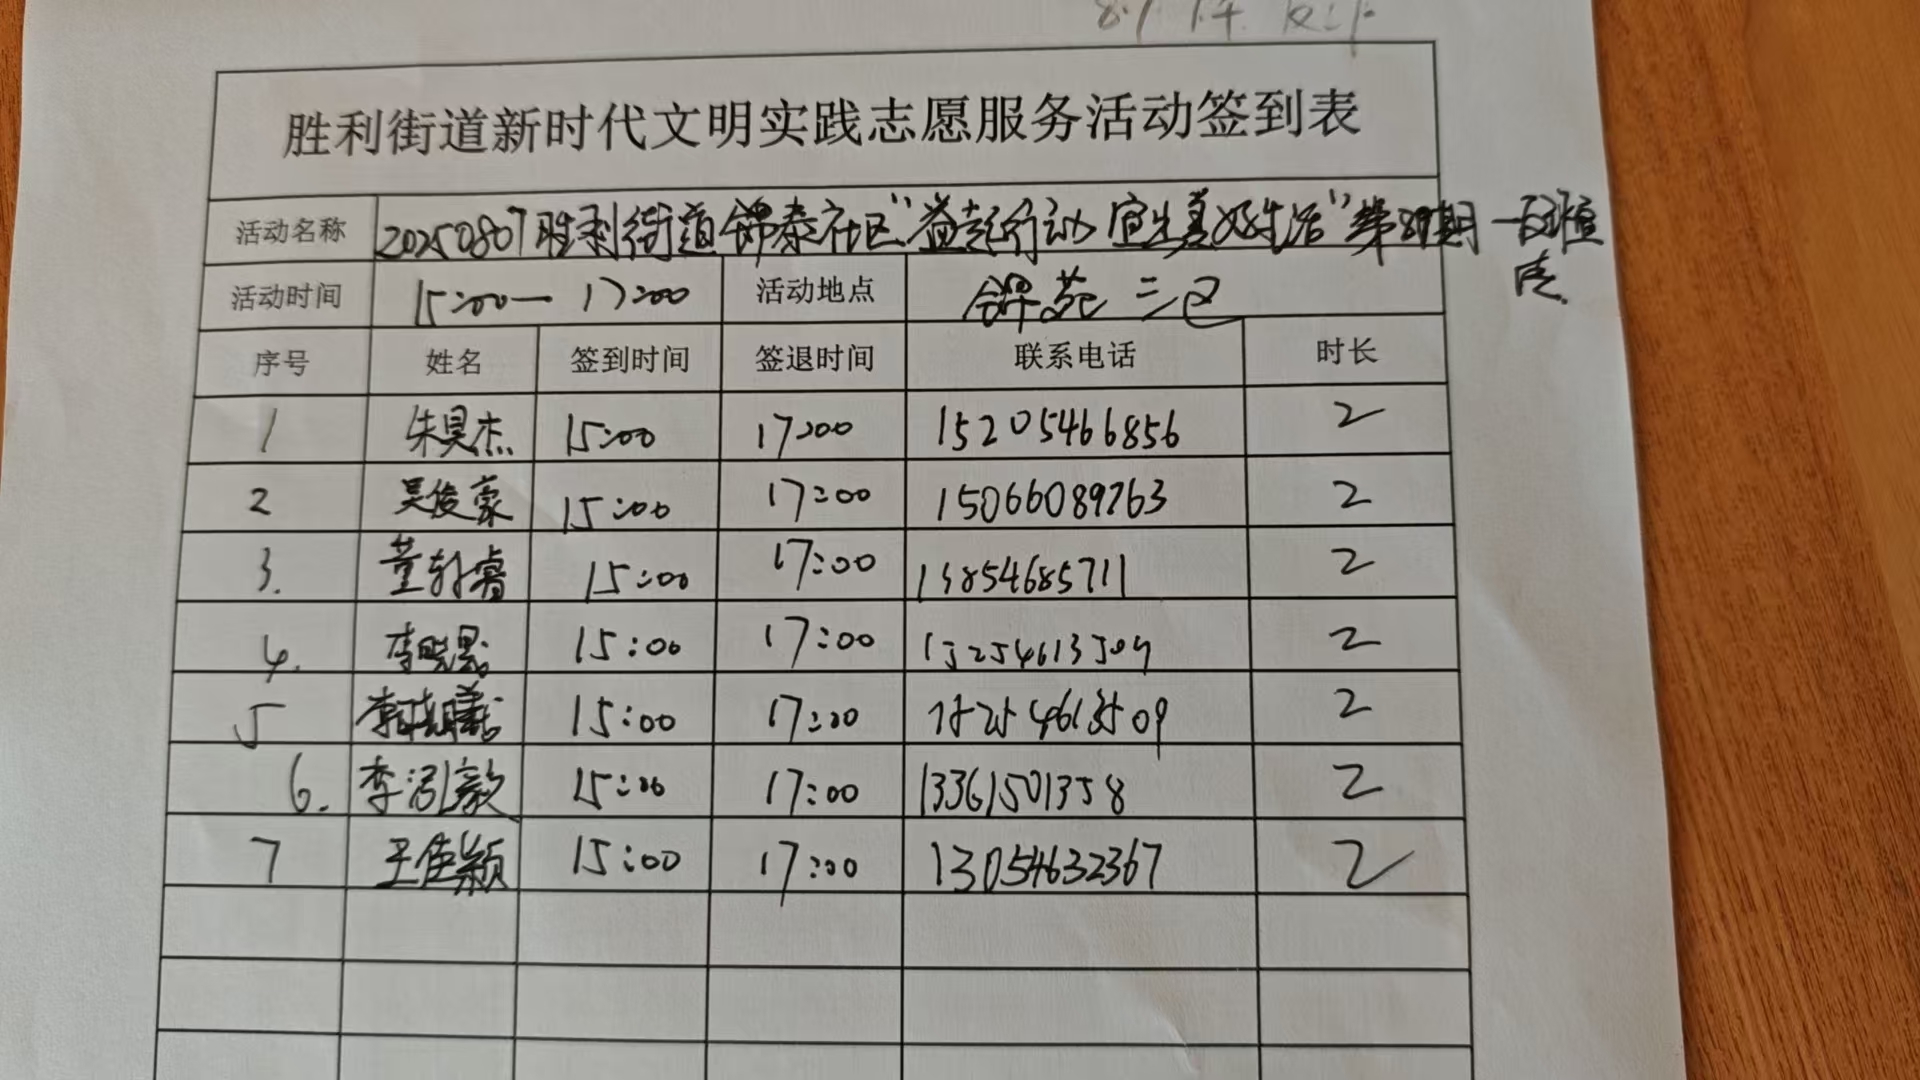 胜利街道新时代文明实践志愿服务活动签到表
活动名称 20250807胜利街道锦泰社区"益起行动 宜生真好生活"第 期
活动时间 15:00—17:00 活动地点 锦苑三区
序号 姓名 签到时间 签退时间 联系电话 时长
1 朱昊杰 15:00 17:00 15205466856 2
2 吴俊豪 15:00 17:00 15066089763 2
3. 董轩睿 15:00 17:00 13854685711 2
4. 李晓 15:00 17:00 13254613509 2
5 李 15:00 17:00 4613509 2
6. 李泓毅 15:00 17:00 13361501358 2
7 王佳颖 15:00 17:00 13054632367 2